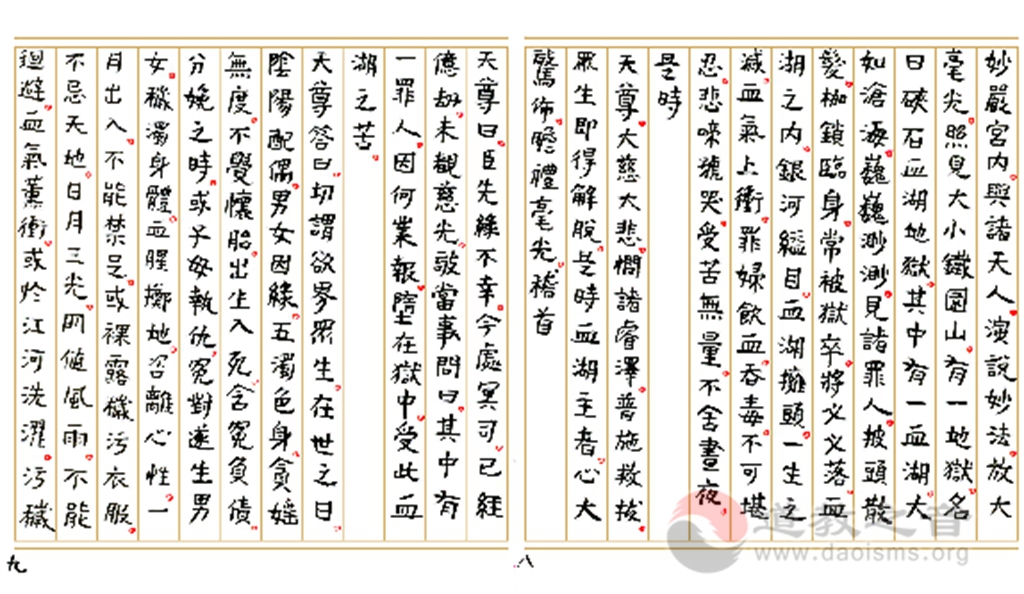 妙嚴宮内與諸天人演說妙法放大
毫光照見大小鐵圍山有一地獄名
曰硤石血湖地獄其中有一血湖大
如滄海巍巍渺渺見諸罪人披頭散
髮枷鎖臨身常被獄卒將乂乂落血
湖之内銀河繼目血湖擁頭一生之
滅血氣上衝罪婦飲血吞毒不可堪
忍悲啼號哭受苦無量不舍晝夜
是時
天尊大慈大悲憫諸睿澤普施救拔
眾生即得解脫是時血湖主者心大
驚佈瞻禮毫光稽首
八
天尊曰臣先緣不幸今處冥司已經
億劫未觀慈光敢當事問曰其中有
一罪人因何業報墮在獄中受此血
湖之苦
天尊答曰切謂欲界眾生在世之日
陰陽配偶男女因緣五濁色身貪婬
無度不覺懷胎出生入死含冤負債
分娩之時或子母執仇冤對遂生男
女穢濁身體血腥擲地召離心性一
月出入不能禁足或裸露穢污衣服
不忌天地日月三光四值風雨不能
迴避血氣薰衝或於江河洗濯污穢
九
道教之音
www.daoisms.org